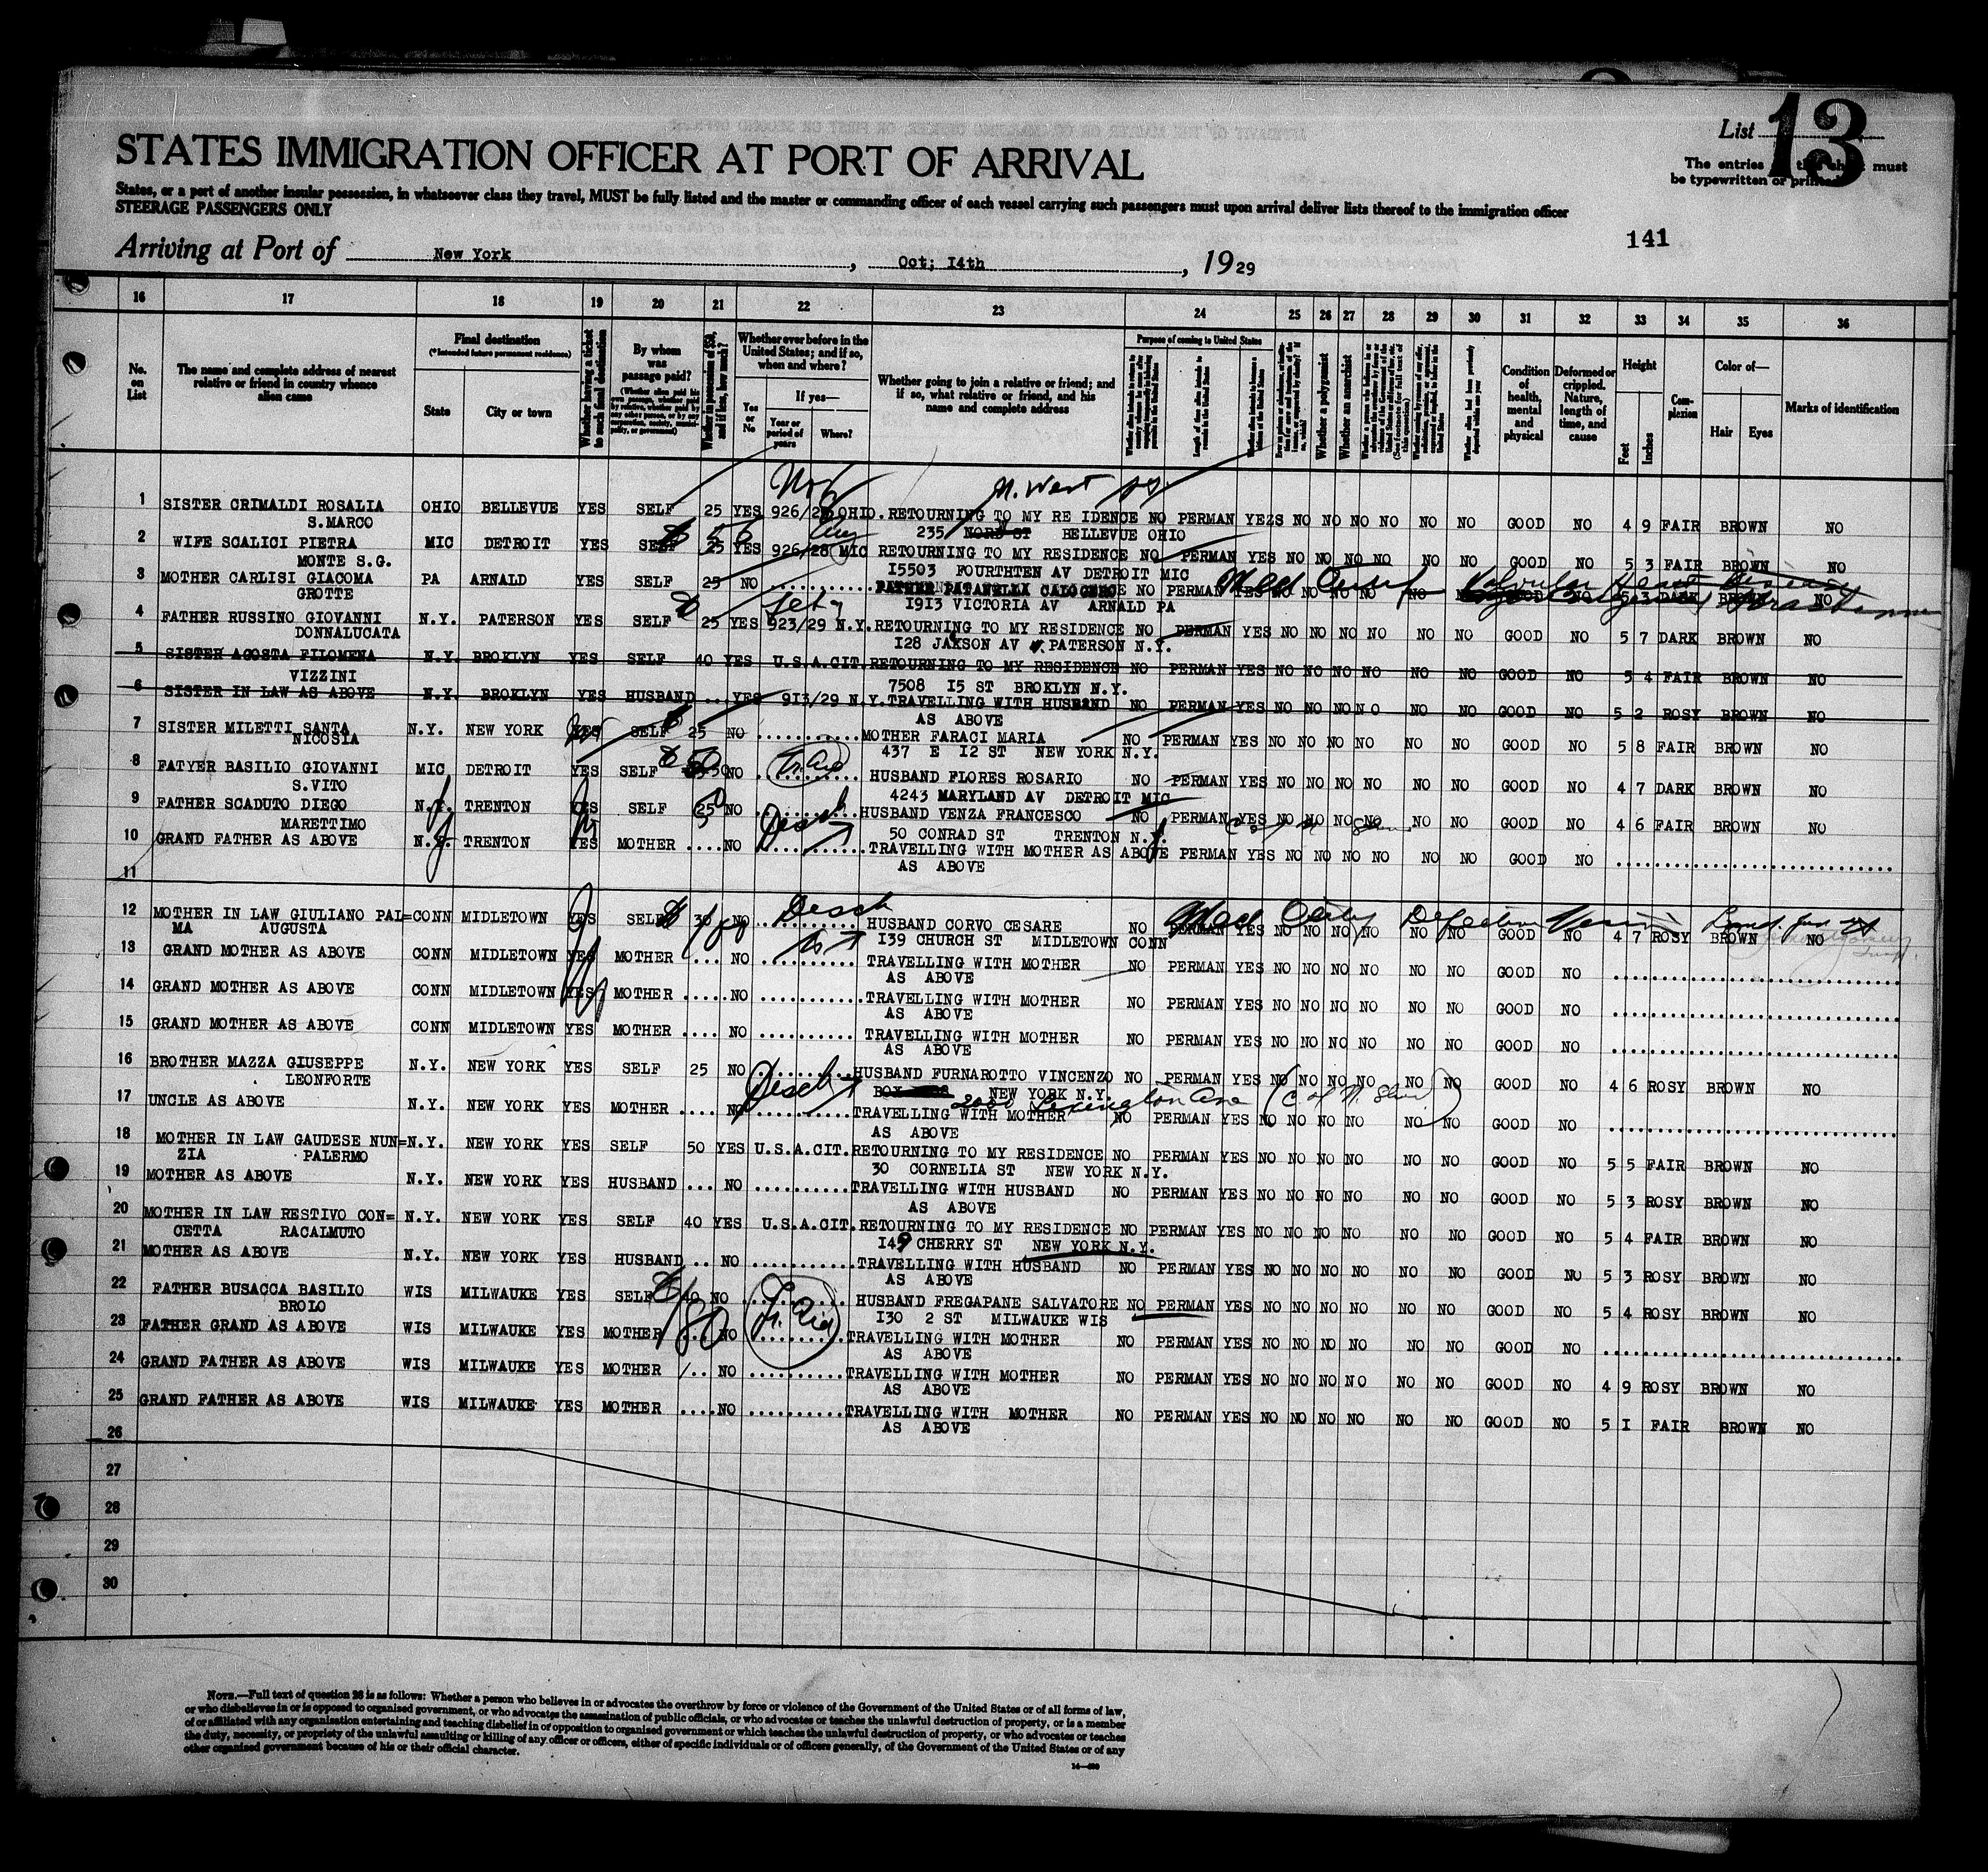 List 13
STATES IMMIGRATION OFFICER AT PORT OF ARRIVAL
The entries must
be typewritten or printed
States, or a port of another insular possession, in whatsoever class they travel, MUST be fully listed and the master or commanding officer of each vessel carrying such passengers must upon arrival deliver lists thereof to the immigration officer
STEERAGE PASSENGERS ONLY
141
Arriving at Port of New York, Oct; I4th, 1929
16 17 18 19 20 21 22 23 24 25 26 27 28 29 30 31 32 33 34 35 36
No. on List
The name and complete address of nearest relative or friend in country whence alien came
Final destination
(*Intended future permanent residence)
State
City or town
Whether having a ticket to such final destination
By whom was passage paid?
(Whether alien paid his own passage, whether paid by relative, whether paid by any other person, or by any corporation, society, municipality, or government)
Whether in possession of $50, and if less, how much?
Whether ever before in the United States; and if so, when and where?
Yes or No
If yes—
Year or period of years
Where?
Whether going to join a relative or friend; and if so, what relative or friend, and his name and complete address
Purpose of coming to United States
Whether a polygamist
Whether an anarchist
Condition of health, mental and physical
Deformed or crippled. Nature, length of time, and cause
Height
Feet
Inches
Complexion
Color of—
Hair
Eyes
Marks of identification
Nov
N. West
1 SISTER CRIMALDI ROSALIA OHIO BELLEVUE YES SELF 25 YES 926/28 OHIO. RETOURNING TO MY RE IDENCE NO PERMAN YEZS NO NO NO NO NO NO GOOD NO 4 9 FAIR BROWN NO
S.MARCO 235 NORD ST BELLEVUE OHIO
2 WIFE SCALICI PIETRA MIC DETROIT YES SELF 25 YES 926/28 MIC RETOURNING TO MY RESIDENCE NO PERMAN YES NO NO NO NO NO NO GOOD NO 5 3 FAIR BROWN NO
MONTE S.G. I5503 FOURTHTEN AV DETROIT MIC
3 MOTHER CARLISI GIACOMA PA ARNALD YES SELF 25 NO FATHER PATANELLA CALOGERO NO PERMAN YES NO NO NO NO NO 5 3 DARK BROWN NO
GROTTE I9I3 VICTORIA AV ARNALD PA
Med Certif Valvular Heart Disease
4 FATHER RUSSINO GIOVANNI N.Y. PATERSON YES SELF 25 YES 923/29 N.Y. RETOURNING TO MY RESIDENCE NO PERMAN YES NO NO NO NO NO NO GOOD NO 5 7 DARK BROWN NO
DONNALUCATA I28 JAKSON AV PATERSON N.Y.
5 SISTER AGOSTA FILOMENA N.Y. BROKLYN YES SELF 40 YES U.S.A.CIT. RETOURNING TO MY RESIDENCE NO PERMAN YES NO NO NO NO NO NO GOOD NO 5 4 FAIR BROWN NO
VIZZINI 7508 I5 ST BROKLYN N.Y.
6 SISTER IN LAW AS ABOVE N.Y. BROKLYN YES HUSBAND ... YES 9I3/29 N.Y. TRAVELLING WITH HUSBAND NO PERMAN YES NO NO NO NO NO NO GOOD NO 5 2 ROSY BROWN NO
AS ABOVE
7 SISTER MILETTI SANTA N.Y. NEW YORK YES SELF 25 NO ............ MOTHER FARACI MARIA NO PERMAN YES NO NO NO NO NO NO GOOD NO 5 8 FAIR BROWN NO
NICOSIA 437 E I2 ST NEW YORK N.Y.
8 FATYER BASILIO GIOVANNI MIC DETROIT YES SELF 50 NO HUSBAND FLORES ROSARIO NO PERMAN YES NO NO NO NO NO NO GOOD NO 4 7 DARK BROWN NO
S.VITO 4243 MARYLAND AV DETROIT MIC
9 FATHER SCADUTO DIEGO N.J. TRENTON YES SELF 25 NO HUSBAND VENZA FRANCESCO NO PERMAN YES NO NO NO NO NO NO GOOD NO 4 6 FAIR BROWN NO
MARETTIMO 50 CONRAD ST TRENTON N.J.
10 GRAND FATHER AS ABOVE N.J. TRENTON YES MOTHER .... NO TRAVELLING WITH MOTHER AS ABOVE PERMAN YES NO NO NO NO NO NO GOOD NO
AS ABOVE
11
12 MOTHER IN LAW GIULIANO PAL= CONN MIDDLETOWN YES SELF 30 NO HUSBAND CORVO CESARE NO PERMAN YES NO NO NO NO NO NO GOOD NO 4 7 ROSY BROWN NO
MA AUGUSTA I39 CHURCH ST MIDLETOWN CONN
Med Certif Defective Vision
13 GRAND MOTHER AS ABOVE CONN MIDLETOWN YES MOTHER ... NO TRAVELLING WITH MOTHER NO PERMAN YES NO NO NO NO NO NO GOOD NO
AS ABOVE
14 GRAND MOTHER AS ABOVE CONN MIDLETOWN YES MOTHER ..... NO ............ TRAVELLING WITH MOTHER NO PERMAN YES NO NO NO NO NO NO GOOD NO
AS ABOVE
15 GRAND MOTHER AS ABOVE CONN MIDLETOWN YES MOTHER .... NO ........... TRAVELLING WITH MOTHER NO PERMAN YES NO NO NO NO NO NO GOOD NO
AS ABOVE
16 BROTHER MAZZA GIUSEPPE N.Y. NEW YORK YES SELF 25 NO HUSBAND FURNAROTTO VINCENZO NO PERMAN YES NO NO NO NO NO NO GOOD NO 4 6 ROSY BROWN NO
LEONFORTE BOX NEW YORK N.Y.
Lexington Ave
17 UNCLE AS ABOVE N.Y. NEW YORK YES MOTHER .... NO TRAVELLING WITH MOTHER NO PERMAN YES NO NO NO NO NO NO GOOD NO
AS ABOVE
18 MOTHER IN LAW GAUDESE NUN= N.Y. NEW YORK YES SELF 50 YES U.S.A.CIT. RETOURNING TO MY RESIDENCE NO PERMAN YES NO NO NO NO NO NO GOOD NO 5 5 FAIR BROWN NO
ZIA PALERMO 30 CORNELIA ST NEW YORK N.Y.
19 MOTHER AS ABOVE N.Y. NEW YORK YES HUSBAND ... NO .......... TRAVELLING WITH HUSBAND NO PERMAN YES NO NO NO NO NO NO GOOD NO 5 3 ROSY BROWN NO
AS ABOVE
20 MOTHER IN LAW RESTIVO CON= N.Y. NEW YORK YES SELF 40 YES U.S.A.CIT. RETOURNING TO MY RESIDENCE NO PERMAN YES NO NO NO NO NO NO GOOD NO 5 4 FAIR BROWN NO
CETTA RACALMUTO I49 CHERRY ST NEW YORK N.Y.
21 MOTHER AS ABOVE N.Y. NEW YORK YES HUSBAND .. NO ........... TRAVELLING WITH HUSBAND NO PERMAN YES NO NO NO NO NO NO GOOD NO 5 3 ROSY BROWN NO
AS ABOVE
22 FATHER BUSACCA BASILIO WIS MILWAUKE YES SELF 40 NO HUSBAND FREGAPANE SALVATORE NO PERMAN YES NO NO NO NO NO NO GOOD NO 5 4 ROSY BROWN NO
BROLO I30 2 ST MILWAUKE WIS
23 FATHER GRAND AS ABOVE WIS MILWAUKE YES MOTHER NO TRAVELLING WITH MOTHER NO PERMAN YES NO NO NO NO NO NO GOOD NO
AS ABOVE
24 GRAND FATHER AS ABOVE WIS MILWAUKE YES MOTHER ... NO .......... TRAVELLING WITH MOTHER NO PERMAN YES NO NO NO NO NO NO GOOD NO 4 9 ROSY BROWN NO
AS ABOVE
25 GRAND FATHER AS ABOVE WIS MILWAUKE YES MOTHER .... NO .......... TRAVELLING WITH MOTHER NO PERMAN YES NO NO NO NO NO NO GOOD NO 5 I FAIR BROWN NO
AS ABOVE
26
27
28
29
30
NOTE.—Full text of question 28 is as follows: Whether a person who believes in or advocates the overthrow by force or violence of the Government of the United States or of all forms of law,
or who disbelieves in or is opposed to organised government, or who advocates the assassination of public officials, or who advocates or teaches the unlawful destruction of property, or is a member
of or affiliated with any organisation entertaining and teaching disbelief in or opposition to organised government or which teaches the unlawful destruction of property, or who advocates or teaches
the duty, necessity, or propriety of the unlawful assaulting or killing of any officer or officers, either of specific individuals or of officers generally, of the Government of the United States or of any
other organised government because of his or their official character.